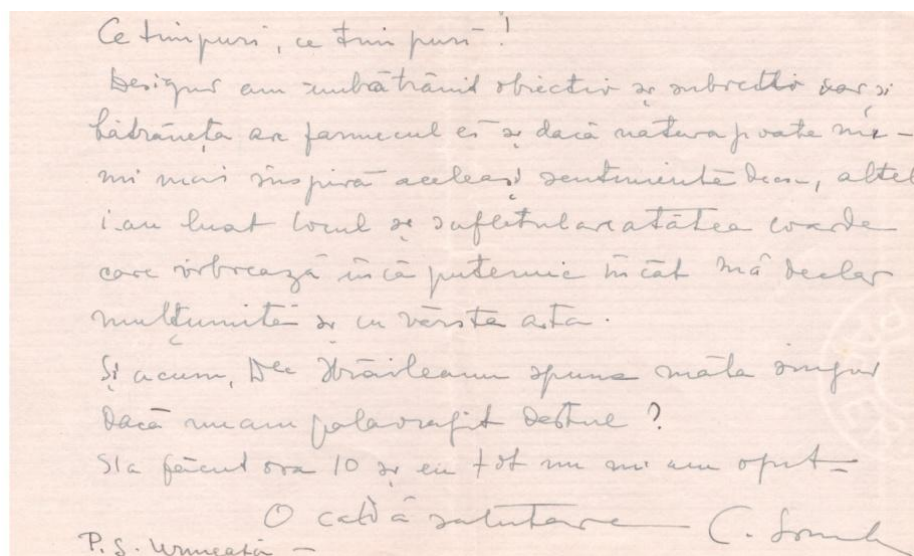 Ce timpuri, ce timpuri!
Desigur am îmbătrânit obiectiv și subiectiv dar și
bătrânețea are farmecul ei și dacă natura poate nu-
mi mai inspiră aceleași sentimente, altele
i-au luat locul și sufletul are atâtea coarde
care vibrează încă puternic încât mă declar
mulțumită și cu vârsta asta.
Și acum, Dle Ibrăileanu spune mata singur
dacă nu am palavragit destul?
S'a făcut ora 10 și eu tot nu mi am oprit
O caldă salutare C.
P.S. Urmează -